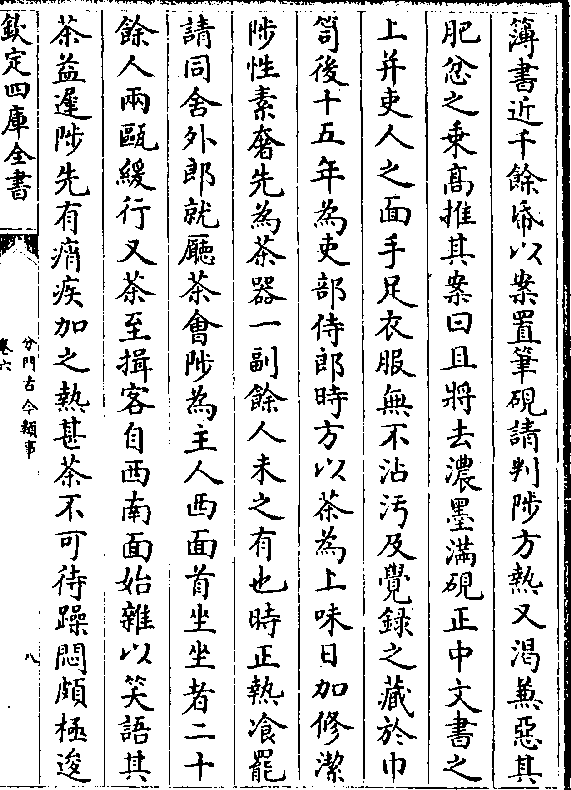 簿書近千餘帋以案置筆硯請判陟方熱又渴兼惡其
肥忿之乗髙推其案曰且將去濃墨滿硯正中文書之
上并吏人之面手足衣服無不沾汚及覺録之藏於巾
笥後十五年為吏部侍郎時方以茶為上味日加修潔
陟性素奢先為茶器一副餘人未之有也時正熱飡罷
請同舍外郎就廳茶㑹陟為主人西面首坐坐者二十
餘人兩甌緩行又茶至揖客自西南面始雜以笑語其
茶益遲陟先有痟疾加之熱甚茶不可待躁悶頗極逡
欽定四庫全書
分門古今類事
卷六
八